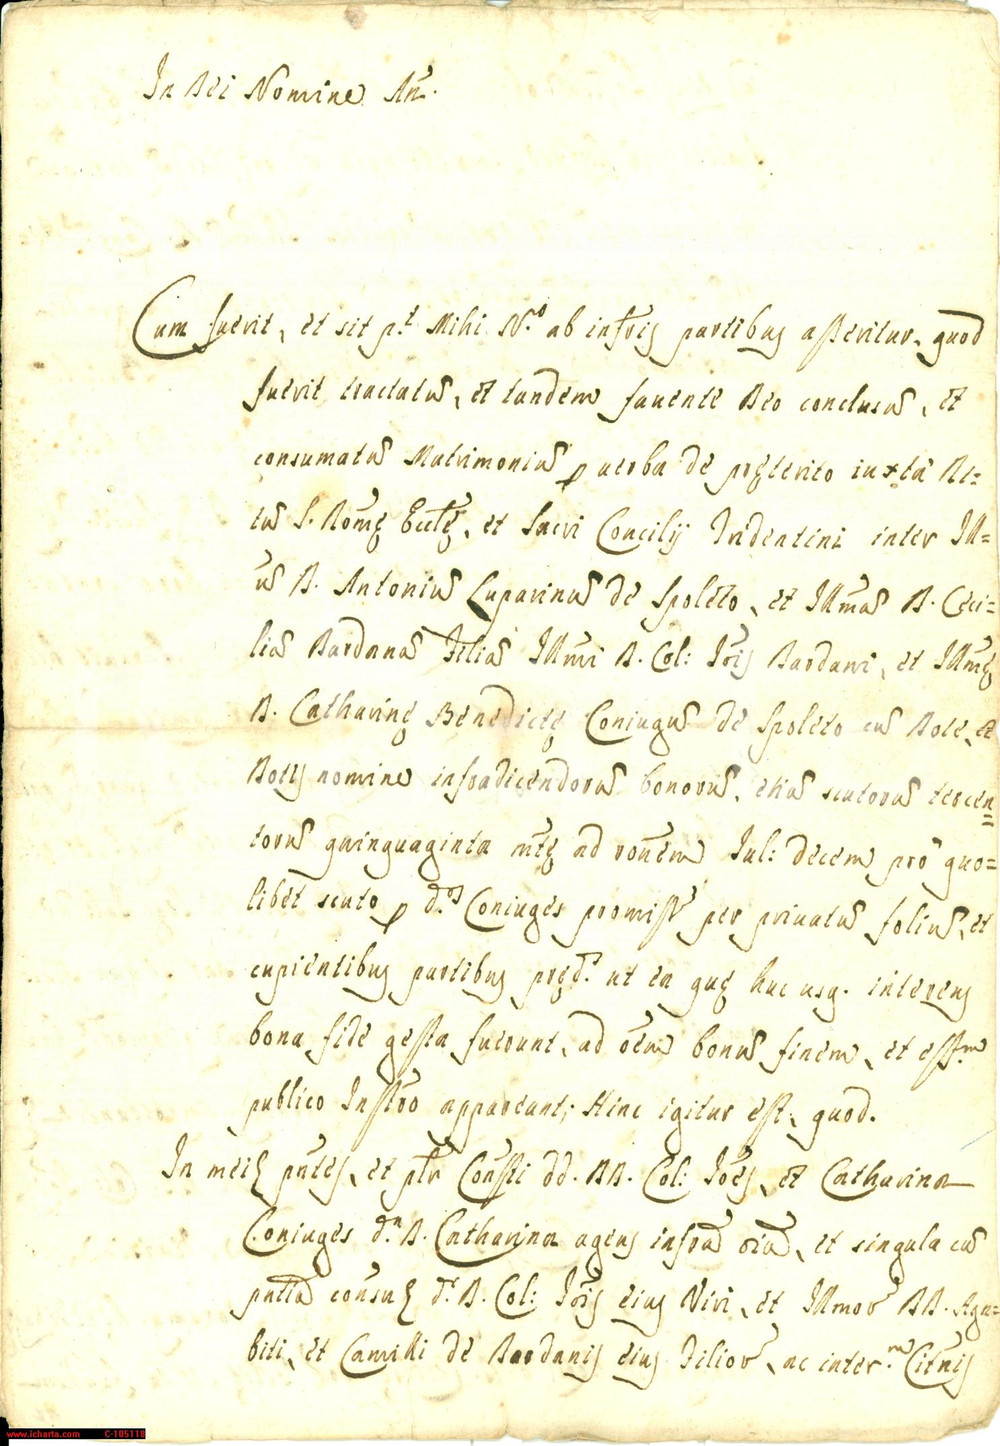 In Dei Nomine Am̃.
Cum fuerit, et sit pt. Mihi Nro. ab infris partibus asseritur, quod
fuerit tractatũ, et tandem favente Deo conclusũ, et
consumatũ Matrimoniũ p verba de pręterito iuxta Ri-
tũ S. Romę Eccłę, et Sacri Concilij Tridentini inter Ill-
ũ D. Antoniũ Luparinũ de Spoleto, et Illmã D. Ceci-
liã Bardanã Filiã Illmi D. Col: Jõis Bardani, et Illmę
D. Catharinę Benedictę Coniugũ de Spoleto cũ Dote, et
Dotis nomine infradicendorũ bonorũ, etiã scutorũ tercen=
torũ quinquaginta mtę ad ronem Jul: decem pro quo-
libet scuto p ds. Coniuges promiss per privatũ foliũ, et
cupientibus partibus pręds. ut ea quę huc usq. inter eas
bona fide gesta fuerunt, ad oẽm bonũ finem, et effm.
publico Instro appareant; Hinc igitur est, quod.
In meis pntes, et ptr Constti dd. DD. Col: Joẽs, et Catharina
Coniuges da. D. Catharina agens infra oia, et singula cũ
pntia consus di. D. Col: Jõis eius Viri, et Illmor DD. Aga-
biti, et Camilli de Bardanis eius Filior, ac inter.m Citñis
www.icharta.com C-105118